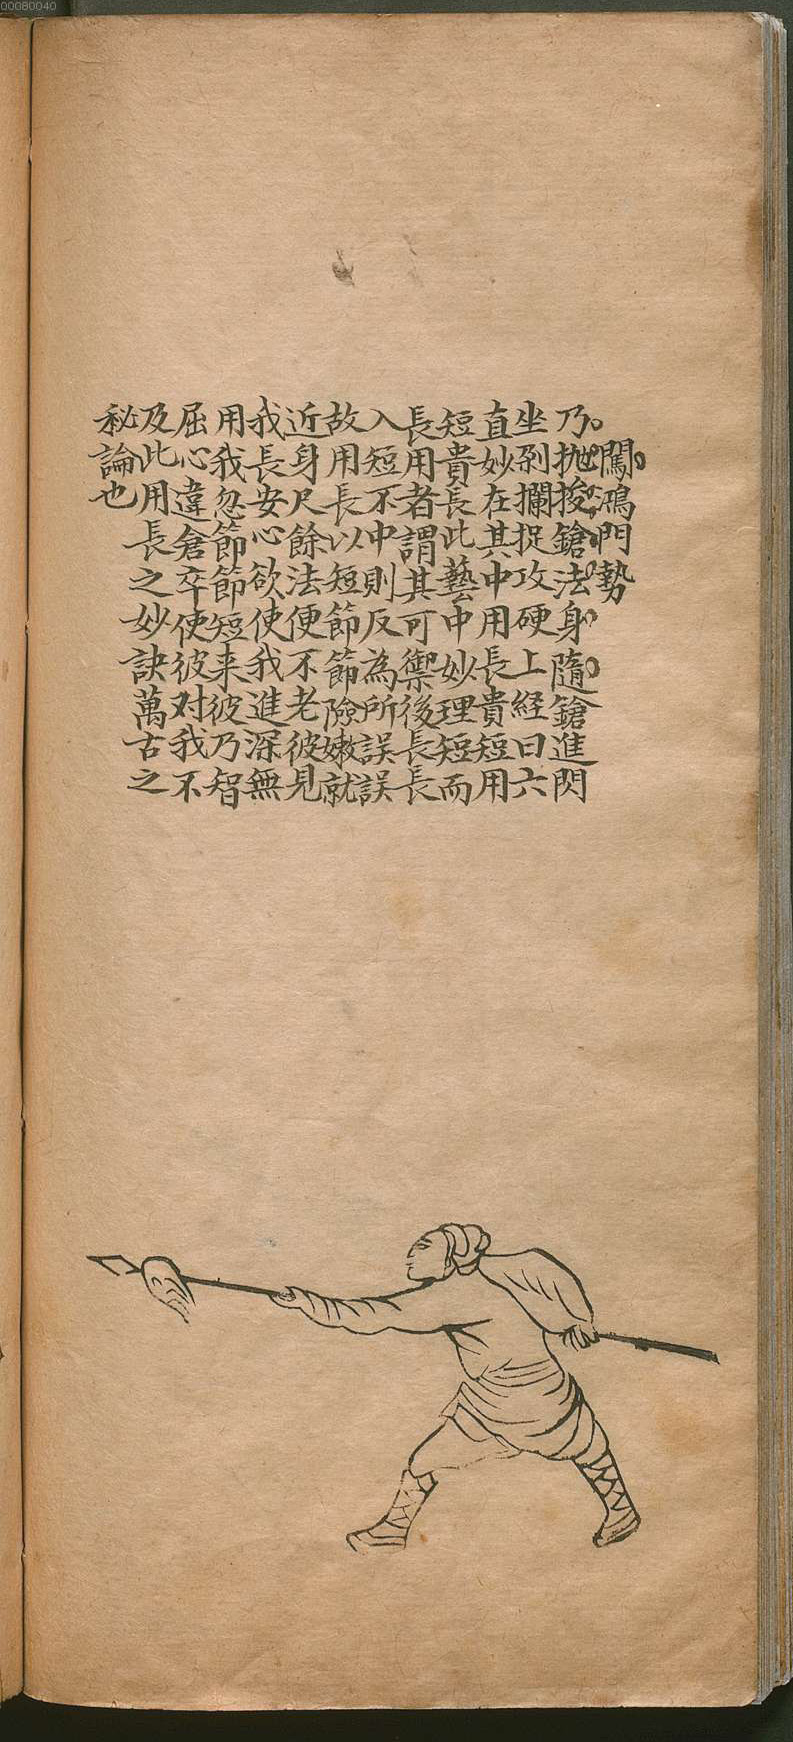 00080040
闖鴻門勢
乃抛梭鎗法身隨鎗進閃
坐剁攔捉攻硬上経曰六
直妙在其中用長貴短用
短貴長此藝中妙理短而
長用者謂其可禦後長長
入短不中則反為所誤誤
故用長以短節節險嫩就
近身尺餘法便不老彼見
我長安心欲使我進深無
用我忽節節短来彼乃智
屈心違倉卒使彼对我不
及此用長之妙訣萬古之
秘論也